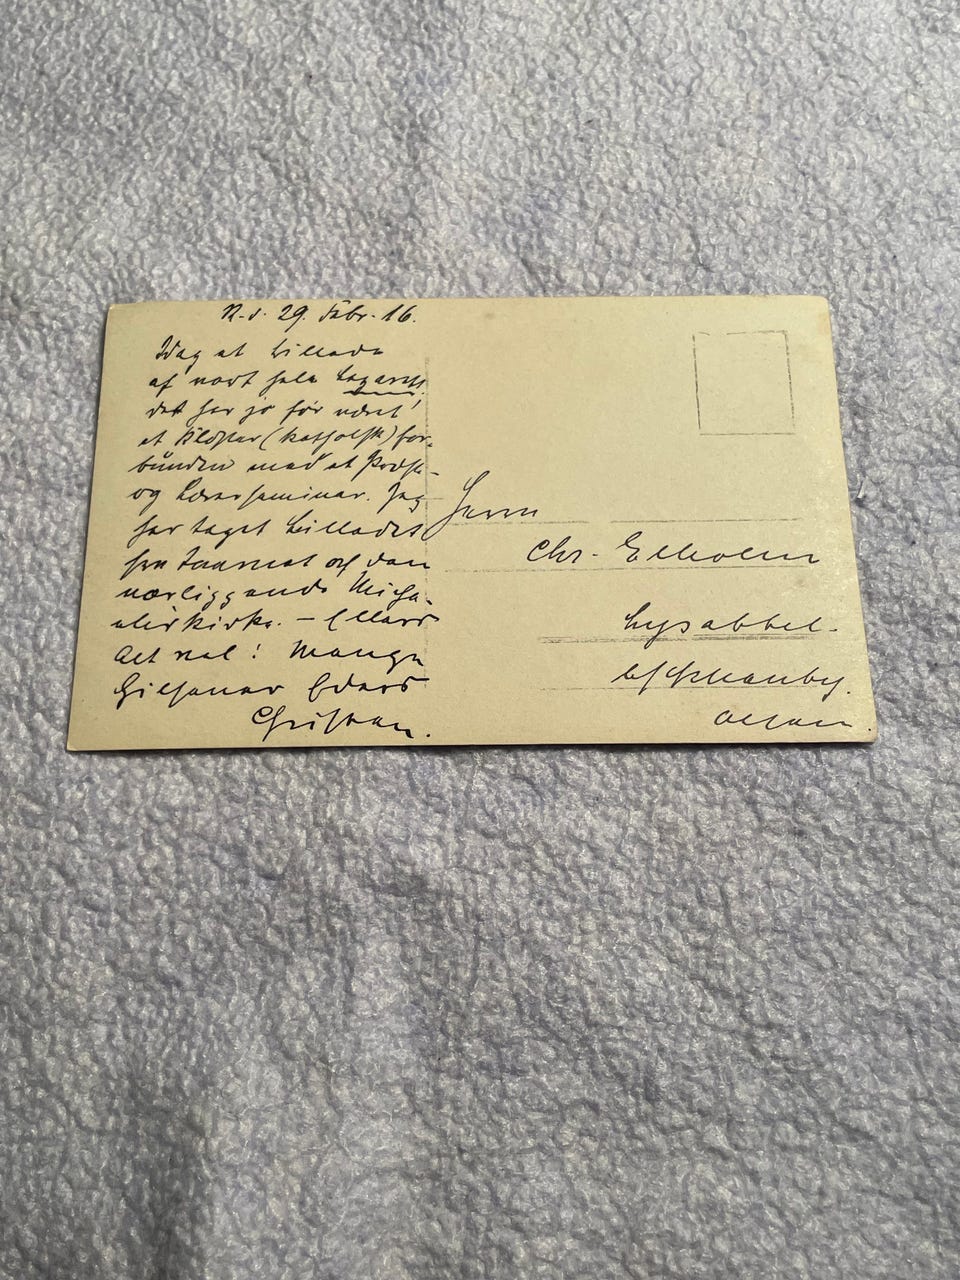 R. d. 29. Febr. 16.
Idag et billede
af vort hele Lazarett.
det har jo før været
et Kloster (katholsk) for-
bunden med et Præste-
og Lærerseminar. Jeg
har taget billedet
fra Taarnet af den
nærliggende Micha-
eliskirke. – Ellers
Alt vel! Mange
Hilsener Eders
Christian.
Herrn
Chr. Ellholm
Lysabbel.
b/Schauby.
Alsen.